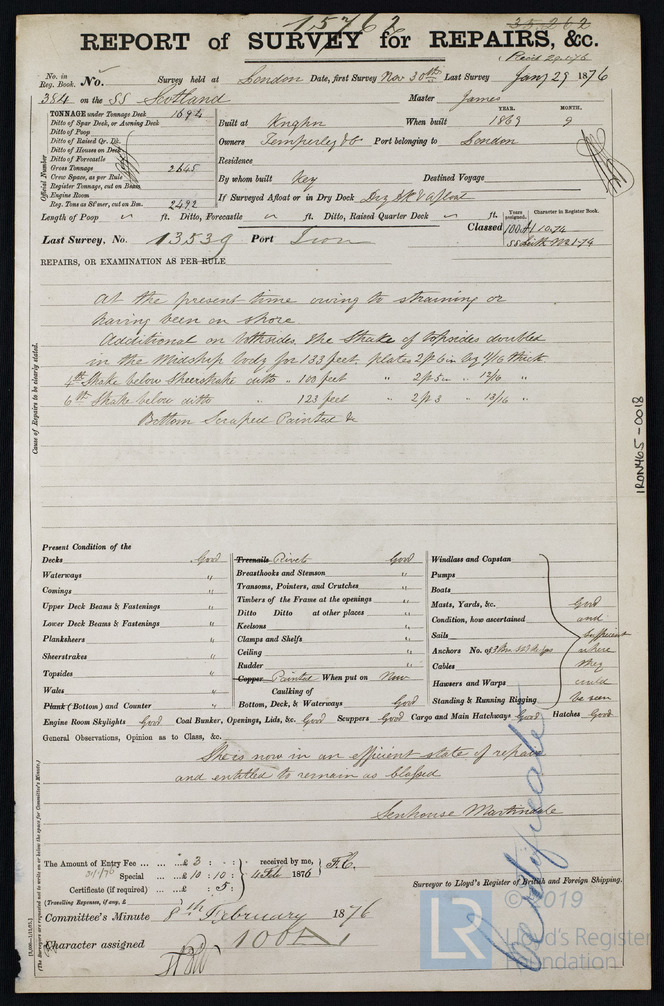 15762
35.262
REPORT of SURVEY for REPAIRS, &c.
Recd 29.1.76
No. in Reg. Book. No. Survey held at London Date, first Survey Nov 30th Last Survey Jany 29 1876
384 on the SS Scotland Master James
TONNAGE under Tonnage Deck 1694
Ditto of Spar Deck, or Awning Deck
Ditto of Poop
Ditto of Raised Qr. Dk.
Ditto of Houses on Deck
Ditto of Forecastle
Gross Tonnage 2645
Crew Space, as per Rule
Register Tonnage, cut on Beam
Engine Room
Reg. Tons as St'mer, cut on Bm. 2492
Official Number
YEAR. MONTH.
Built at Knghn When built 1869 9
Owners Temperley & Co Port belonging to London
Residence
By whom built Key Destined Voyage
If Surveyed Afloat or in Dry Dock Dry Dk & Afloat
Length of Poop ft. Ditto, Forecastle ft. Ditto, Raised Quarter Deck ft.
Classed
Years assigned. Character in Register Book.
100A1 10.74
Last Survey, No. 13539 Port Iron
REPAIRS, OR EXAMINATION AS PER RULE
Cause of Repairs to be clearly stated.
At the present time owing to straining or
having been on shore
Additional on bothsides, the Strake of topsides doubled
in the Midship body for 133 feet. plates 2ft 6in by 9/16 thick
4th Strake below Sheerstrake ditto " 100 feet " 2ft 5in " 13/16 "
6th Strake below ditto " 123 feet " 2ft 3 " 13/16 "
Bottom Scraped Painted &c
IRON465-0018
Present Condition of the
Decks Good
Waterways "
Comings "
Upper Deck Beams & Fastenings "
Lower Deck Beams & Fastenings "
Planksheers "
Sheerstrakes "
Topsides "
Wales "
Plank (Bottom) and Counter "
Treenails Rivets Good
Breasthooks and Stemson "
Transoms, Pointers, and Crutches "
Timbers of the Frame at the openings "
Ditto Ditto at other places "
Keelsons "
Clamps and Shelfs "
Ceiling "
Rudder "
Copper Painted When put on Now
Caulking of
Bottom, Deck, & Waterways Good
Windlass and Capstan
Pumps
Boats
Masts, Yards, &c. Good
Condition, how ascertained and
Sails Sufficient
Anchors No. of where
Cables they
Hawsers and Warps could
Standing & Running Rigging be seen
Engine Room Skylights Good Coal Bunker, Openings, Lids, &c. Good Scuppers Good Cargo and Main Hatchways Good Hatches Good
General Observations, Opinion as to Class, &c.
She is now in an efficient state of repair
and entitled to remain as Classed
Senhouse Martindale
Surveyor to Lloyd's Register of British and Foreign Shipping.
The Amount of Entry Fee £ 3 : - : - received by me, F.C.
31/1/76 Special £ 10 : 10 : 4 Feb 1876
Certificate (if required) £ : 5 :
(Travelling Expenses, if any, £
Committee's Minute 8th February 1876
Character assigned 100A1
Certificate
(The Surveyors are requested not to write on or below the space for Committee's Minute.)
©2019
LR
Lloyd's Register
Foundation